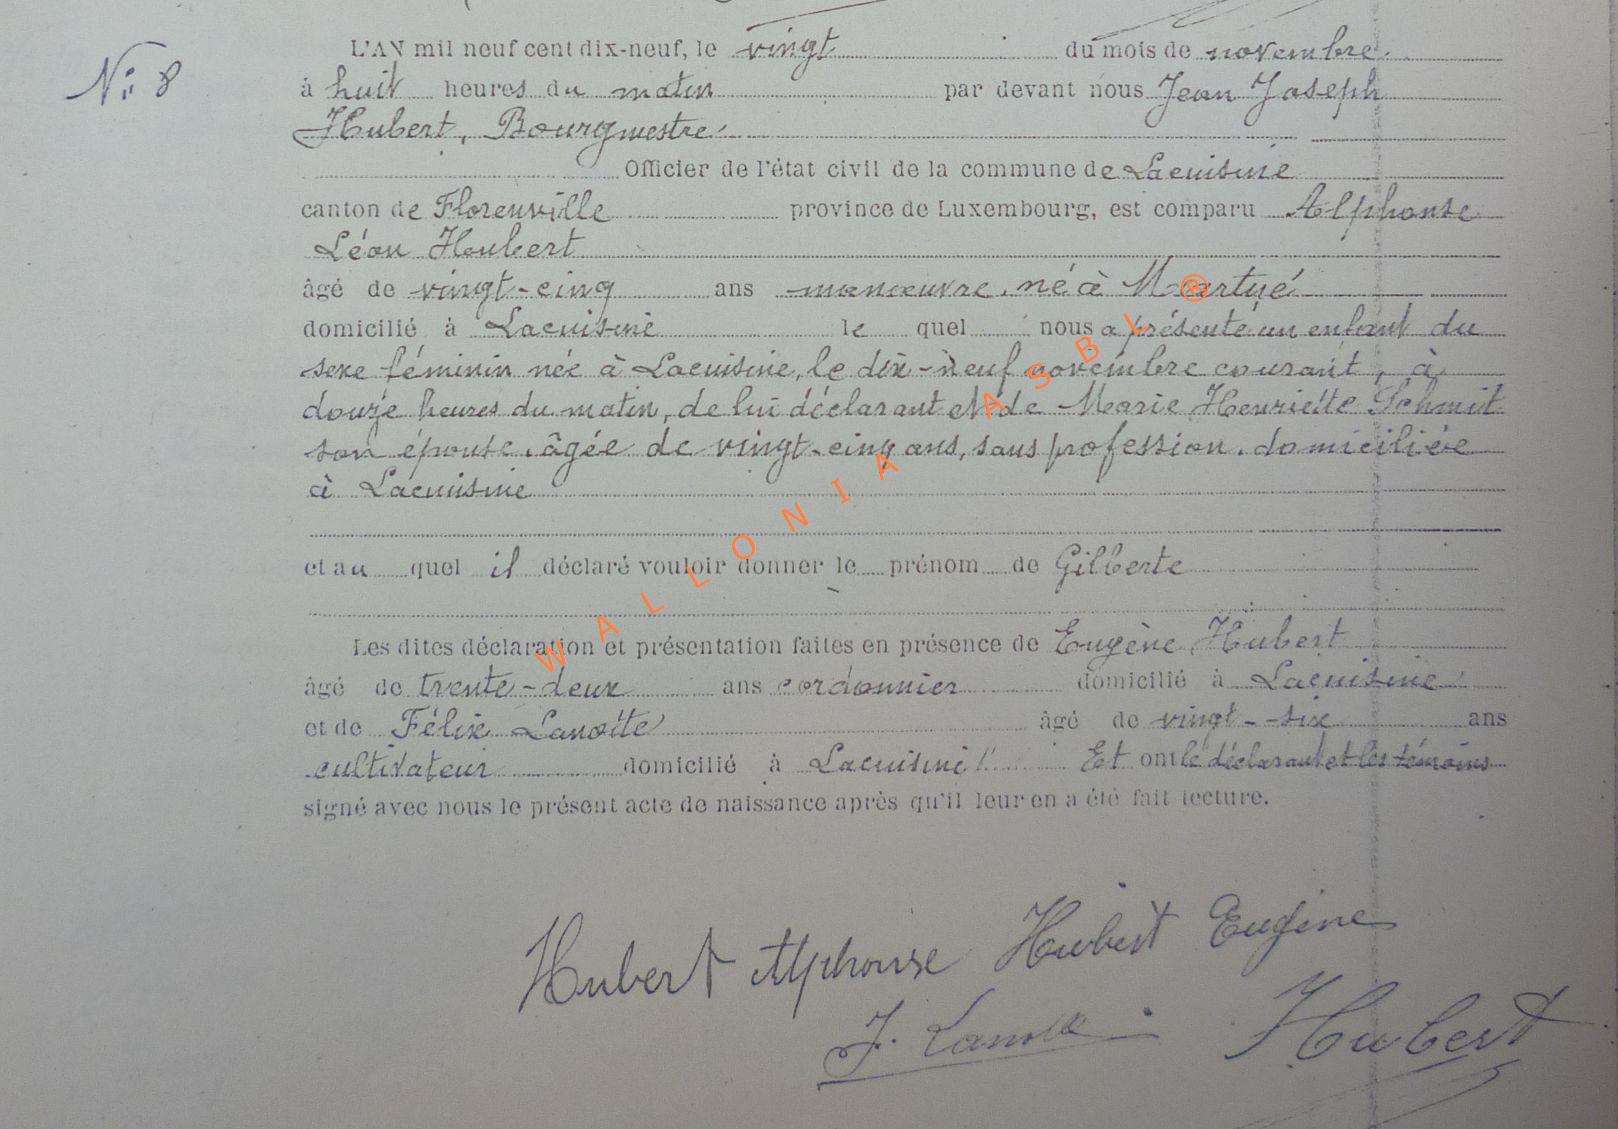 N° 8
L'AN mil neuf cent dix-neuf, le vingt du mois de novembre
à huit heures du matin par devant nous Jean Joseph
Hubert, Bourgmestre
Officier de l'état civil de la commune de Lacuisine
canton de Florenville province de Luxembourg, est comparu Alphonse
Léon Hubert
âgé de vingt-cinq ans manœuvre, né à Martué
domicilié à Lacuisine le quel nous a présenté un enfant du
sexe féminin née à Lacuisine, le dix-neuf novembre courant, à
douze heures du matin, de lui déclarant et de Marie Henriette Schmit
son épouse, âgée de vingt-cinq ans, sans profession, domiciliée
à Lacuisine
et au quel il déclaré vouloir donner le prénom de Gilberte
Les dites déclaration et présentation faites en présence de Eugène Hubert
âgé de trente-deux ans cordonnier domicilié à Lacuisine
et de Félix Lanotte âgé de vingt-six ans
cultivateur domicilié à Lacuisine Et ont le déclarant et les témoins
signé avec nous le présent acte de naissance après qu'il leur en a été fait lecture.
Hubert Alphonse Hubert Eugène
F. Lanotte Hubert
WALLONIA ASBL ®